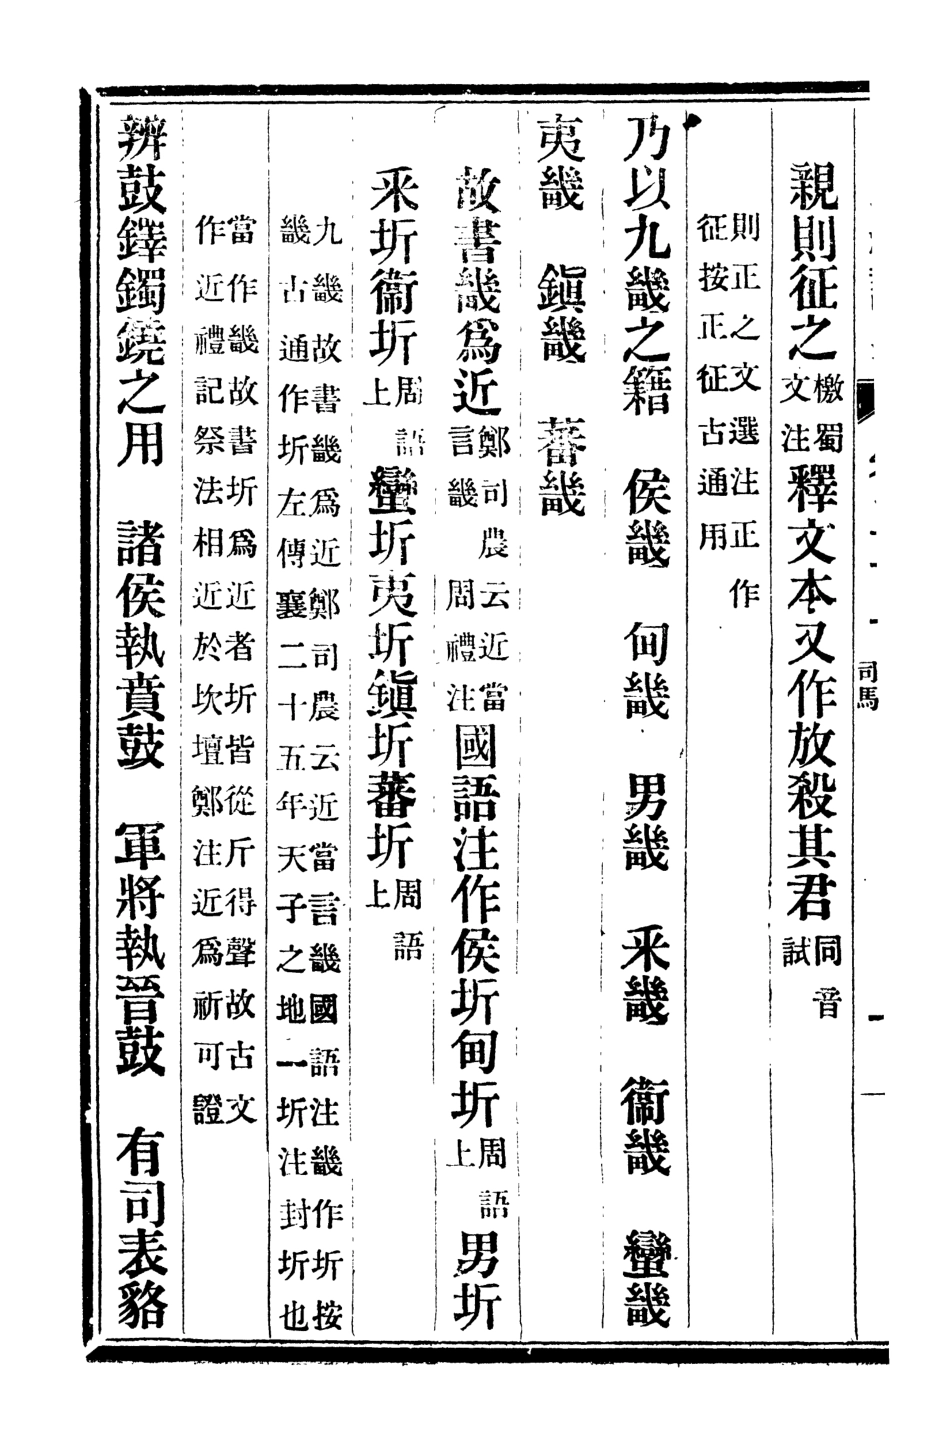 親則征之檄蜀文注釋文本又作放殺其君同音試
則正之文選注正作
征按正征古通用
乃以九畿之籍　侯畿　甸畿　男畿　采畿　衞畿　蠻畿
夷畿　鎭畿　蕃畿
故書畿爲近鄭司農云近當言畿周禮注國語注作侯圻甸圻周語上男圻
采圻衞圻周語上蠻圻夷圻鎭圻蕃圻周語上
九畿故書畿爲近鄭司農云近當言畿國語注畿作圻按
畿古通作圻左傳襄二十五年天子之地一圻注封圻也
當作畿故書圻爲近者圻皆從斤得聲故古文
作近禮記祭法相近於坎壇鄭注近爲祈可證
辨鼓鐸鐲鐃之用　諸侯執賁鼓　軍將執晉鼓　有司表貉
司馬